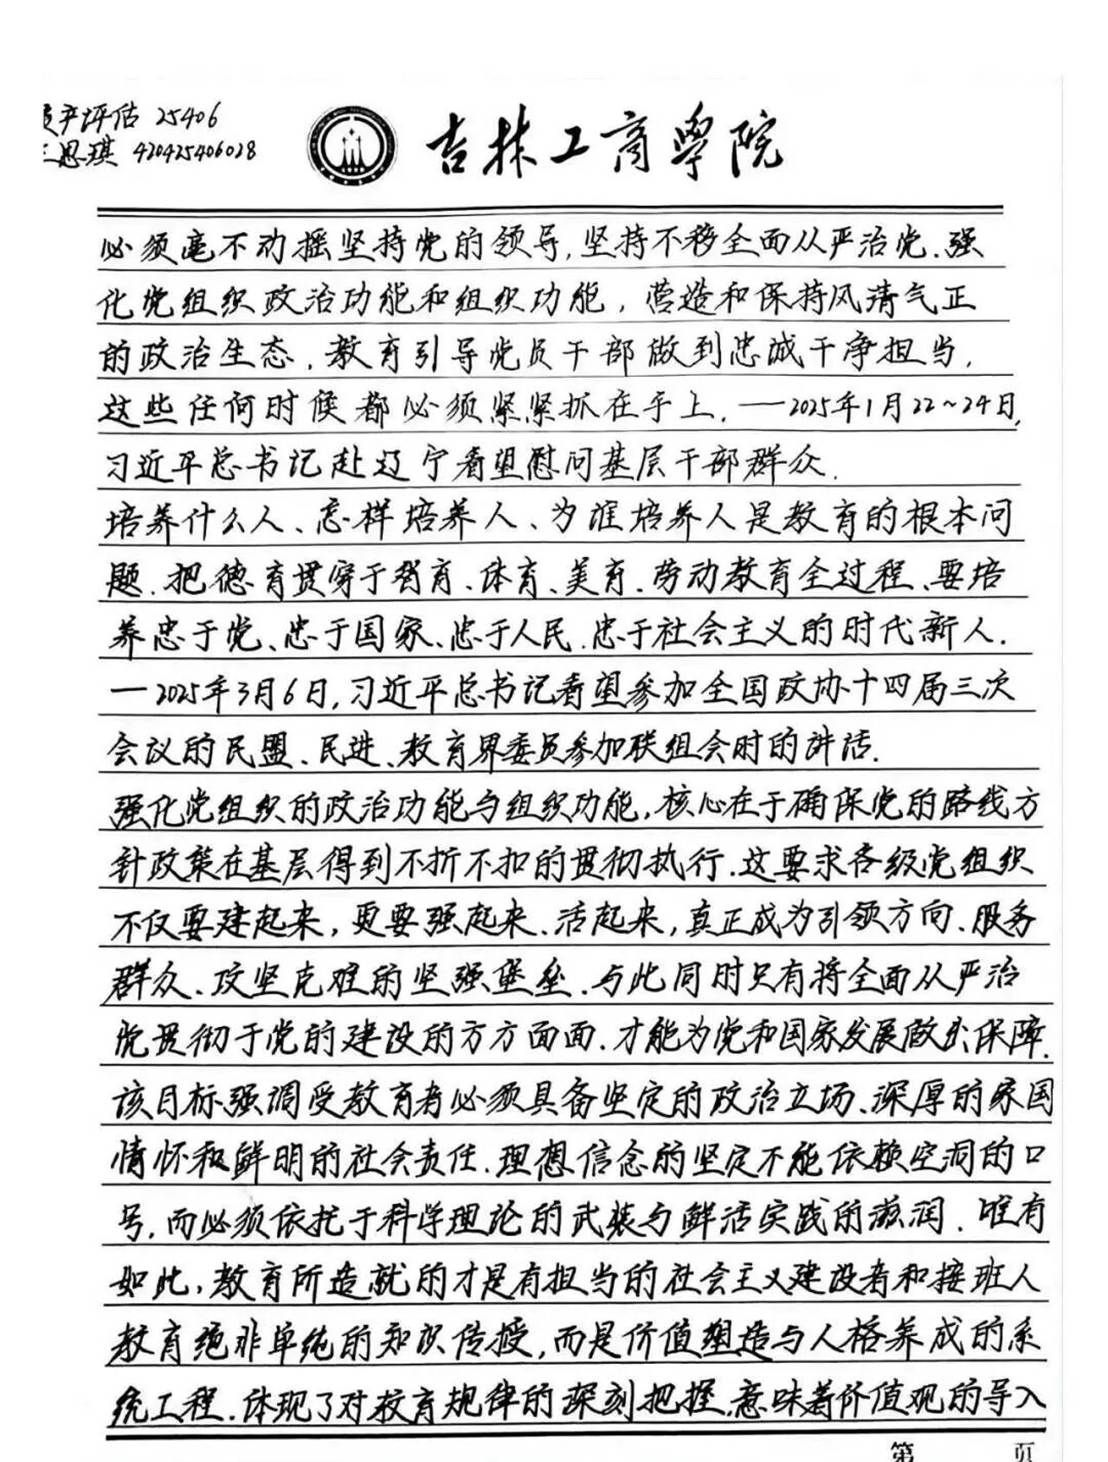 产评估 25406
思琪 420425406028
吉林工商学院
必须毫不动摇坚持党的领导,坚持不移全面从严治党.强
化党组织政治功能和组织功能,营造和保持风清气正
的政治生态,教育引导党员干部做到忠诚干净担当,
这些任何时候都必须紧紧抓在手上.—2025年1月22~24日,
习近平总书记赴辽宁看望慰问基层干部群众.
培养什么人、怎样培养人、为谁培养人是教育的根本问
题.把德育贯穿于智育、体育、美育、劳动教育全过程、要培
养忠于党、忠于国家、忠于人民.忠于社会主义的时代新人.
—2025年3月6日,习近平总书记看望参加全国政协十四届三次
会议的民盟、民进、教育界委员参加联组会时的讲话.
强化党组织的政治功能与组织功能,核心在于确保党的路线方
针政策在基层得到不折不扣的贯彻执行.这要求各级党组织
不仅要建起来,更要强起来、活起来,真正成为引领方向、服务
群众、攻坚克难的坚强堡垒.与此同时只有将全面从严治
党贯彻于党的建设的方方面面.才能为党和国家发展做出保障.
该目标强调受教育者必须具备坚定的政治立场、深厚的家国
情怀和鲜明的社会责任.理想信念的坚定不能依赖空洞的口
号,而必须依托于科学理论的武装与鲜活实践的滋润.唯有
如此,教育所造就的才是有担当的社会主义建设者和接班人
教育绝非单纯的知识传授,而是价值塑造与人格养成的系
统工程.体现了对教育规律的深刻把握.意味着价值观的导入
第 页